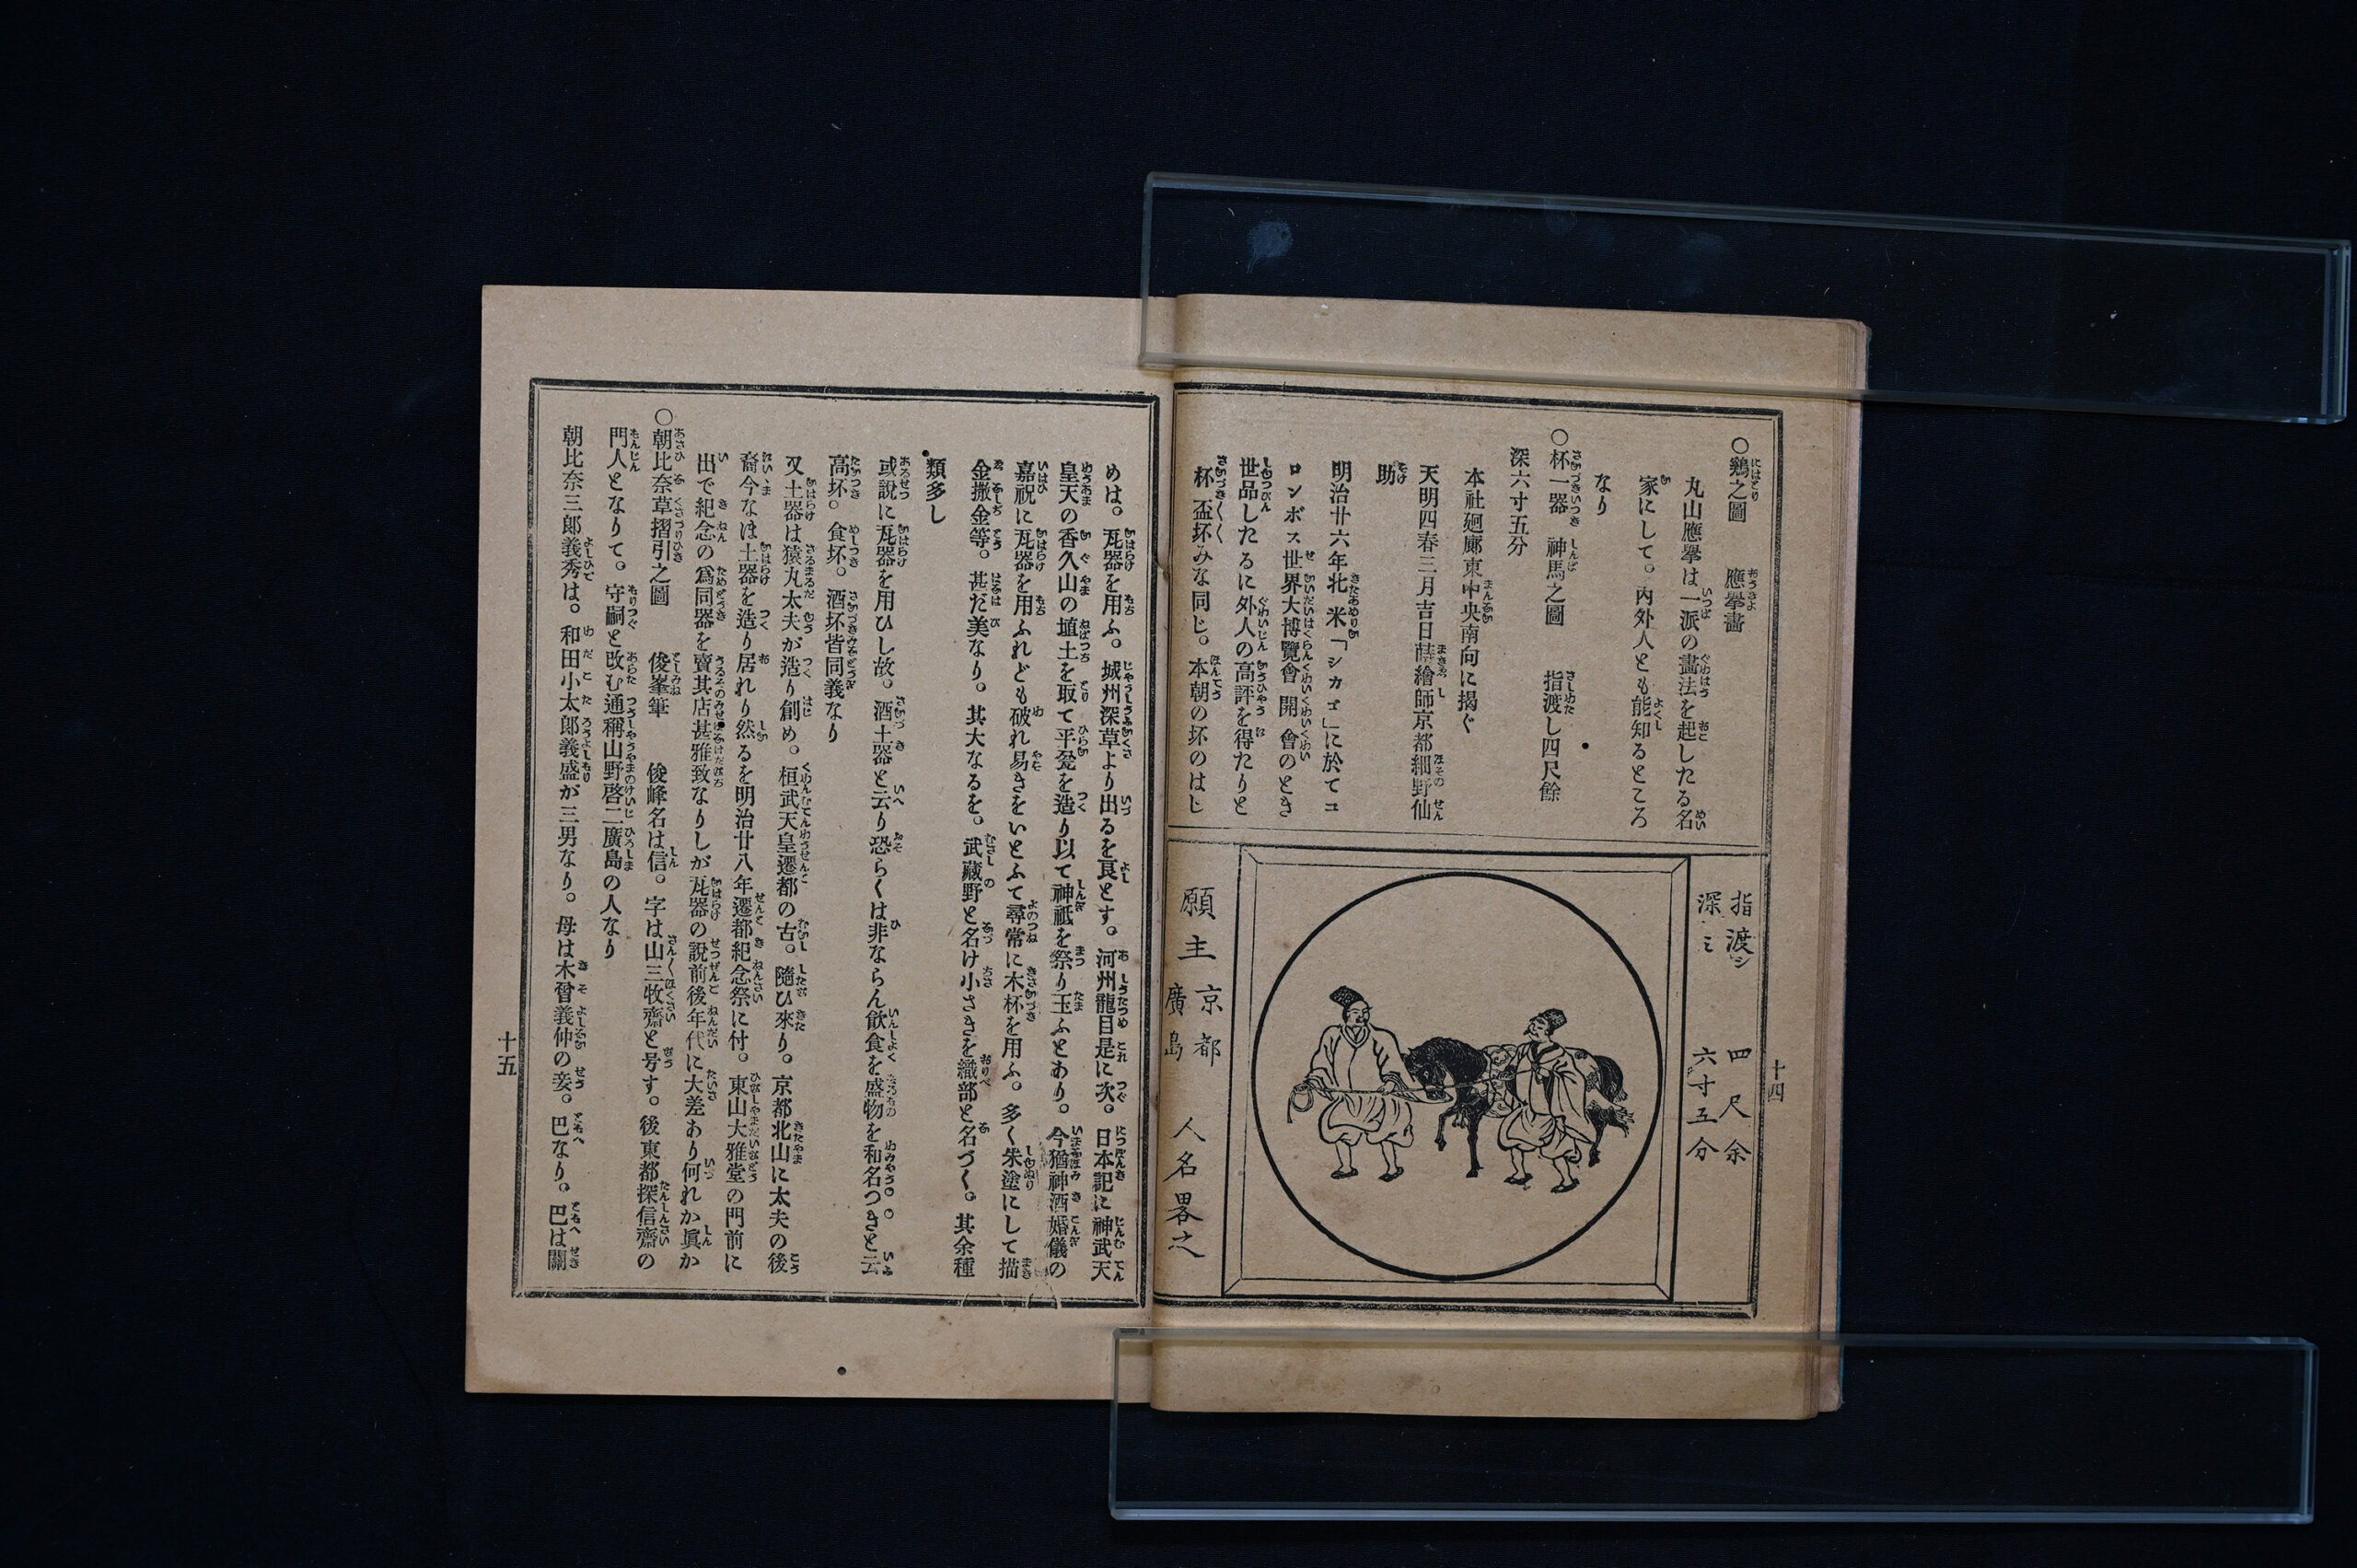 ○鷄之圖　應擧畵
丸山應擧は一派の畵法を起したる名
家にして。内外人とも能知るところ
なり
○杯一器　神馬之圖　指渡し四尺餘
深六寸五分
本社廻廊東中央南向に掲ぐ
天明四春三月吉日蒔繪師京都細野仙
助
明治廿六年北米「シカゴ」に於てコ
ロンボス世界大博覽會開會のとき
世品したるに外人の高評を得たりと
杯 盃坏みな同じ。本朝の坏のはじ
指渡シ　四尺余
深ミ　六寸五分
願主　京都
廣島　人名畧之
十四
めは。瓦器を用ふ。城州深草より出るを良とす。河州龍目是に次。日本記に神武天
皇天の香久山の埴土を取て平瓮を造り以て神祇を祭り玉ふとあり。今猶神酒婚儀の
嘉祝に瓦器を用ふれども破れ易きをいとふて尋常に木杯を用ふ。多く朱塗にして描
金撒金等。甚だ美なり。其大なるを。武藏野と名け小さきを織部と名づく。其余種
類多し
或説に瓦器を用ひし故。酒土器と云り恐らくは非ならん飲食を盛物を和名つきと云
高坏。食坏。酒坏皆同義なり
又土器は猿丸太夫が造り創め。桓武天皇遷都の古。隨ひ來り。京都北山に太夫の後
裔今なほ土器を造り居れり然るを明治廿八年遷都紀念祭に付。東山大雅堂の門前に
出で紀念の爲同器を賣其店甚雅致なりしが瓦器の説前後年代に大差あり何れか眞か
○朝比奈草摺引之圖　俊峯筆　俊峰名は信。字は山三牧齋と号す。後東都探信齋の
門人となりて。守嗣と改む通稱山野啓二廣島の人なり
朝比奈三郎義秀は。和田小太郎義盛が三男なり。母は木曾義仲の妾。巴なり。巴は關
十五